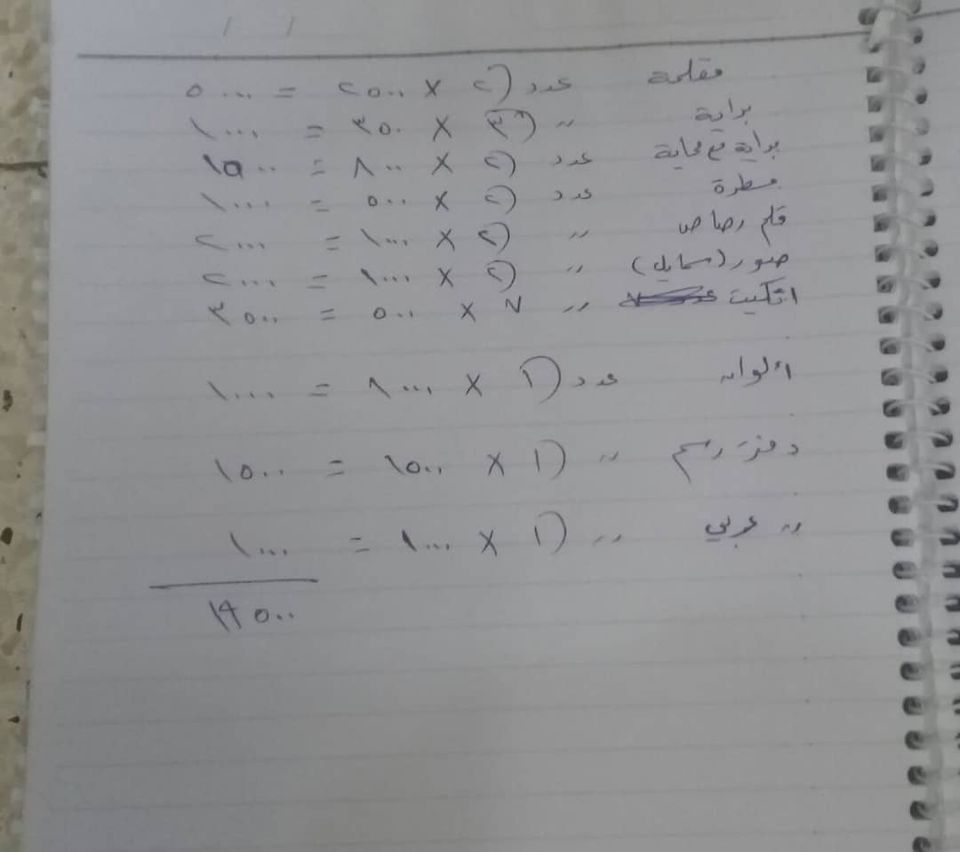 / /
مقلمة عدد (٢ × ٢٥٠٠ = ٥٠٠٠
براية " (٣ × ٣٥٠ = ١٠٠٠
براية مع محاية عدد (٢ × ٨٠٠ = ١٥٠٠
مسطرة عدد (٢ × ٥٠٠ = ١٠٠٠
قلم رصاص " (٢ × ١٠٠٠ = ٢٠٠٠
صور (سمايل) " (٢ × ١٠٠٠ = ٢٠٠٠
اتكيت " ٧ × ٥٠٠ = ٣٥٠٠
ألوان عدد (١ × ١٠٠٠ = ١٠٠٠
دفتر رسم " (١ × ١٥٠٠ = ١٥٠٠
" عربي " (١ × ١٠٠٠ = ١٠٠٠
١٩٥٠٠